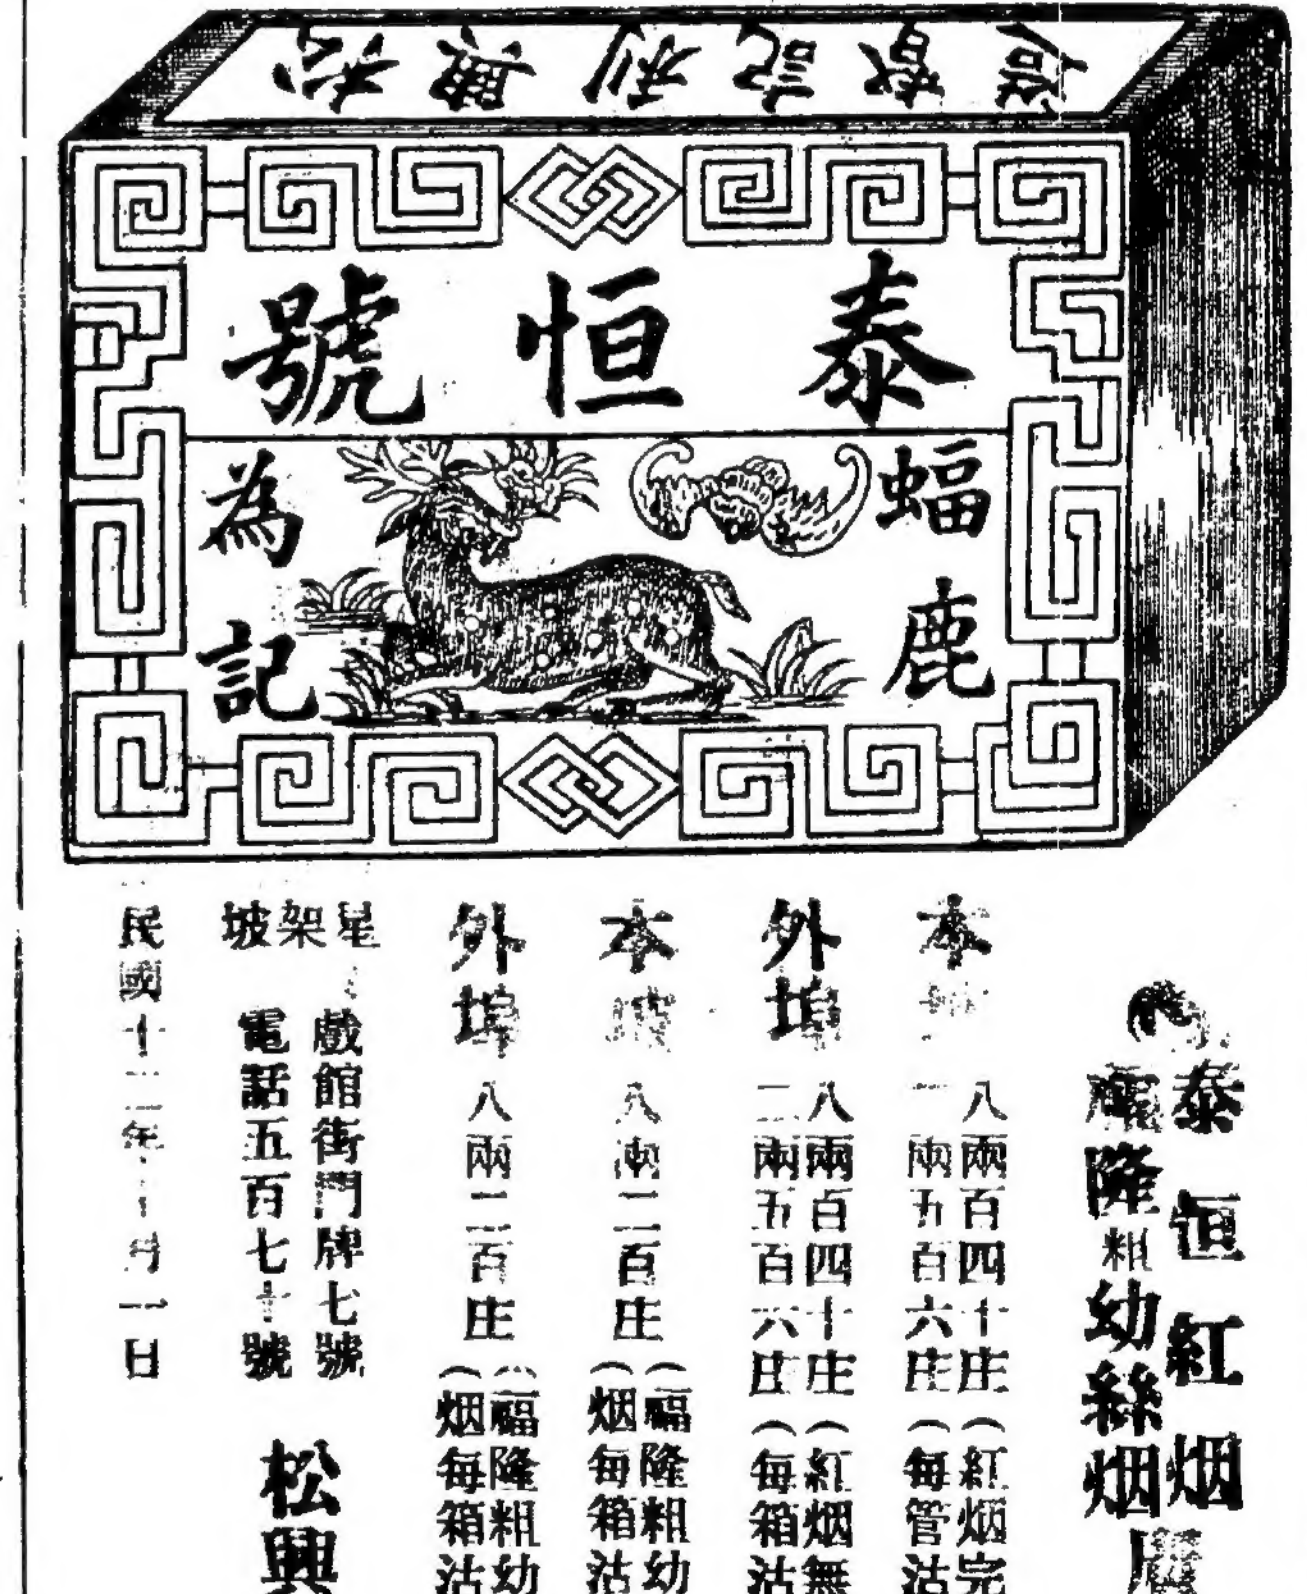 泰恒號
蝠鹿
為記
泰恒紅烟
福隆粗幼絲烟
本
八兩百四十庄(紅烟完
一兩五百六庄(每管沽
外埠
八兩百四十庄(紅烟無
二兩五百六庄(每箱沽
本
八兩二百庄
(福隆粗幼
(烟每箱沽
外埠
八兩二百庄
(福隆粗幼
(烟每箱沽
星架坡
戲館街門牌七號
電話五百七十號
松興
民國十二年十月一日